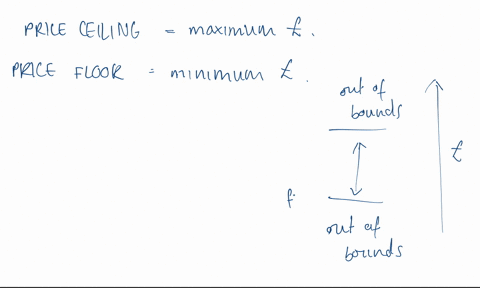 PRICE CEILING = maximum £.
PRICE FLOOR = minimum £.
out of
bounds
£
f
out of
bounds